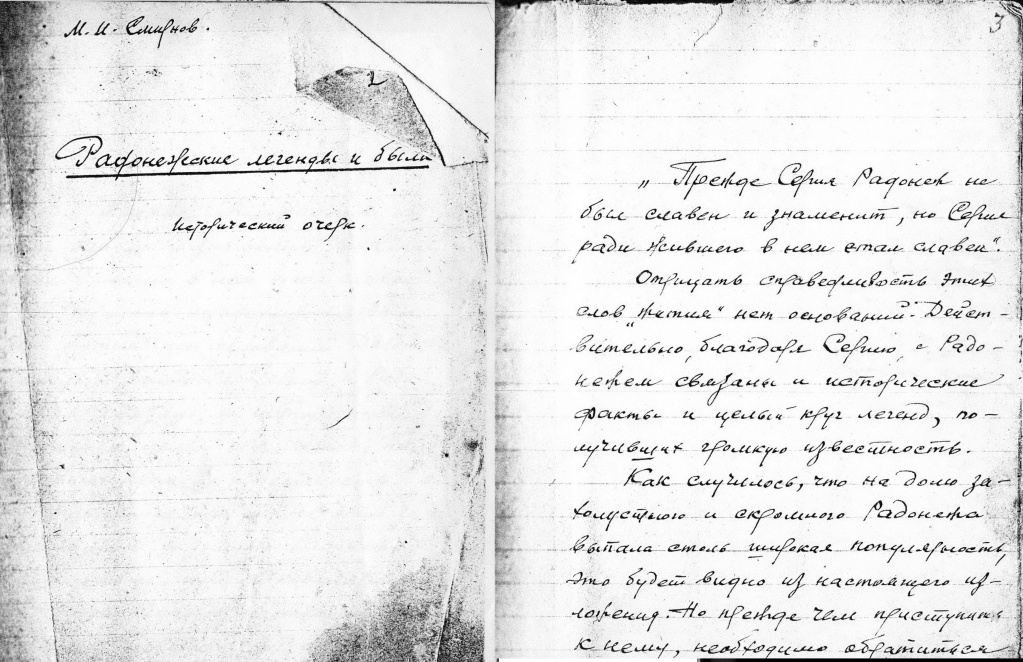 М. И. Смирнов.
2
Радонежские легенды и были
Исторический очерк.
3
„Прежде Сергия Радонеж не
был славен и знаменит, но Сергия
ради жившего в нем стал славен“.
Отрицать справедливость этих
слов „жития“ нет оснований. Дейст-
вительно, благодаря Сергию, с Радо-
нежем связаны и исторические
факты и целый круг легенд, по-
лучивших громкую известность.
Как случилось, что на долю за-
холустного и скромного Радонежа
выпала столь широкая популярность,
это будет видно из настоящего из-
ложения. Но прежде чем приступить
к нему, необходимо обратиться